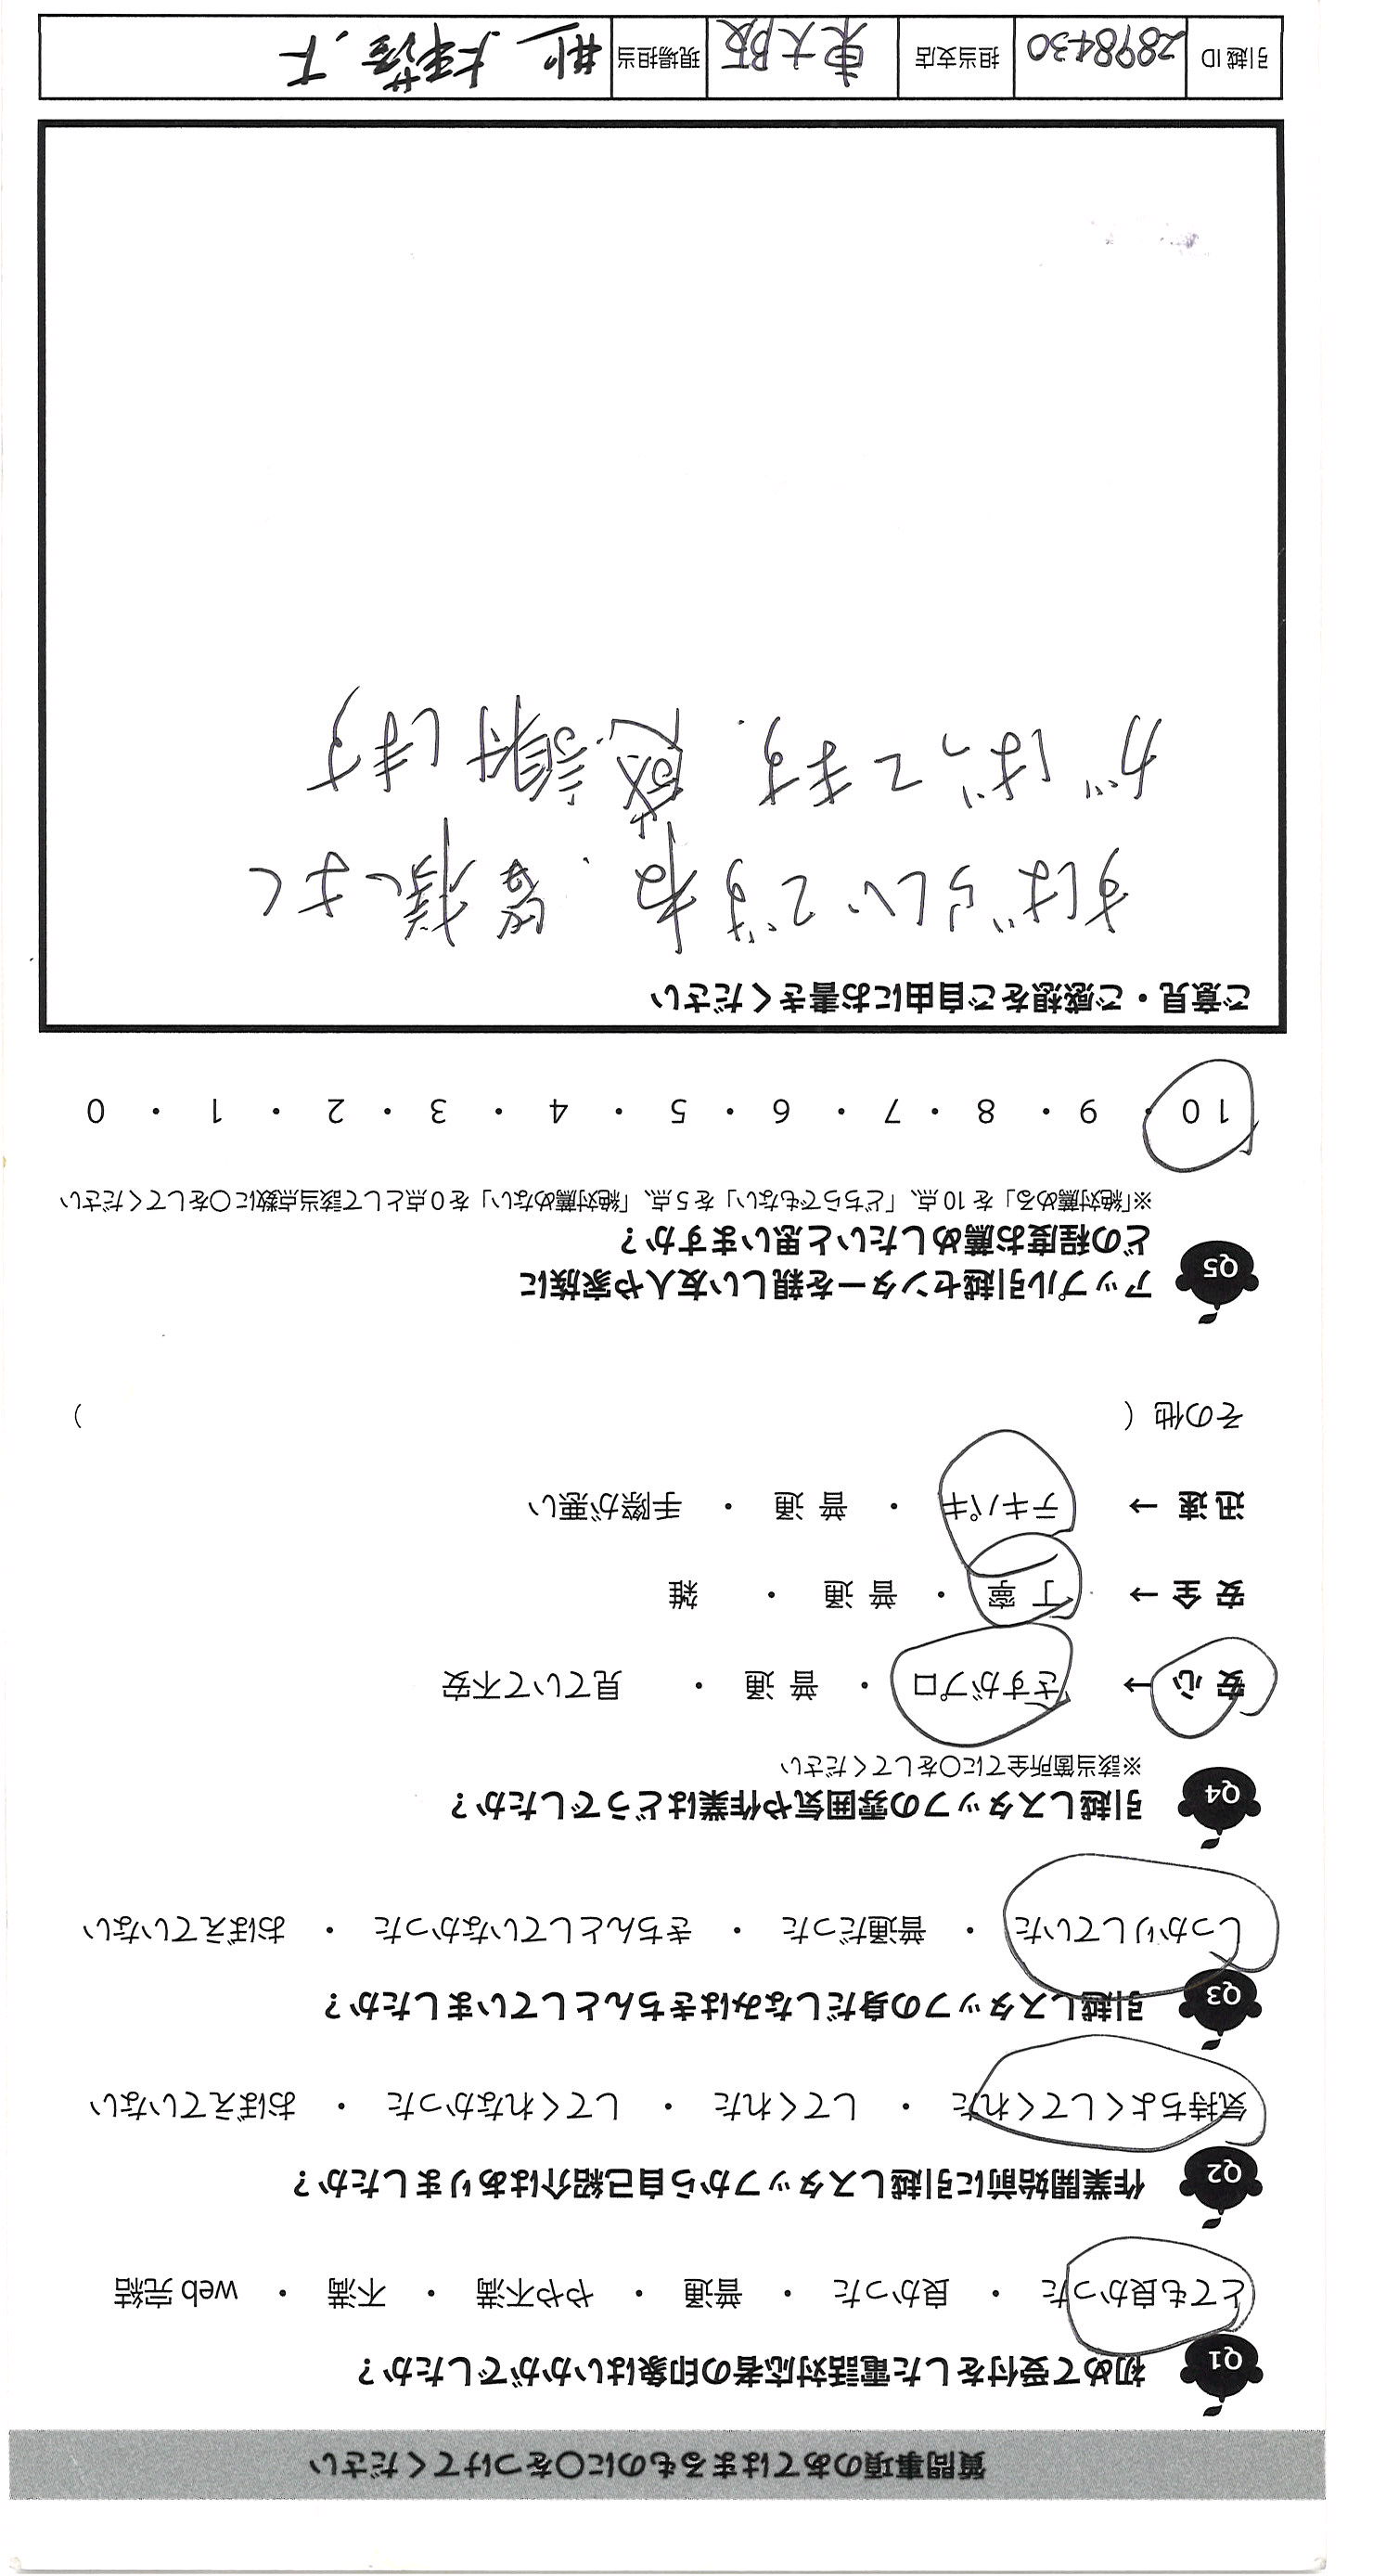 質問事項のあてはまるものに〇をつけてください
Q1 初めて受付をした電話対応者の印象はいかがでしたか？
とても良かった ・ 良かった ・ 普通 ・ やや不満 ・ 不満 ・ web 完結
Q2 作業開始前に引越しスタッフから自己紹介はありましたか？
気持ちよくしてくれた ・ してくれた ・ してくれなかった ・ おぼえていない
Q3 引越しスタッフの身だしなみはきちんとしていましたか？
しっかりしていた ・ 普通だった ・ きちんとしていなかった ・ おぼえていない
Q4 引越しスタッフの雰囲気や作業はどうでしたか？
※該当箇所全てに〇をしてください
安心→ さすがプロ ・ 普通 ・ 見ていて不安
安全→ 丁寧 ・ 普通 ・ 雑
迅速→ テキパキ ・ 普通 ・ 手際が悪い
その他（ ）
Q5 アップル引越センターを親しい友人や家族に
どの程度お薦めしたいと思いますか？
※「絶対薦める」を10点、「どちらでもない」を5点、「絶対薦めない」を0点として該当点数に〇をしてください
10 ・ 9 ・ 8 ・ 7 ・ 6 ・ 5 ・ 4 ・ 3 ・ 2 ・ 1 ・ 0
ご意見・ご感想をご自由にお書きください
すばらしいですね. 皆様よく
がばってます. 感謝します
引越ID 2898430 担当支店 東大阪 現場担当